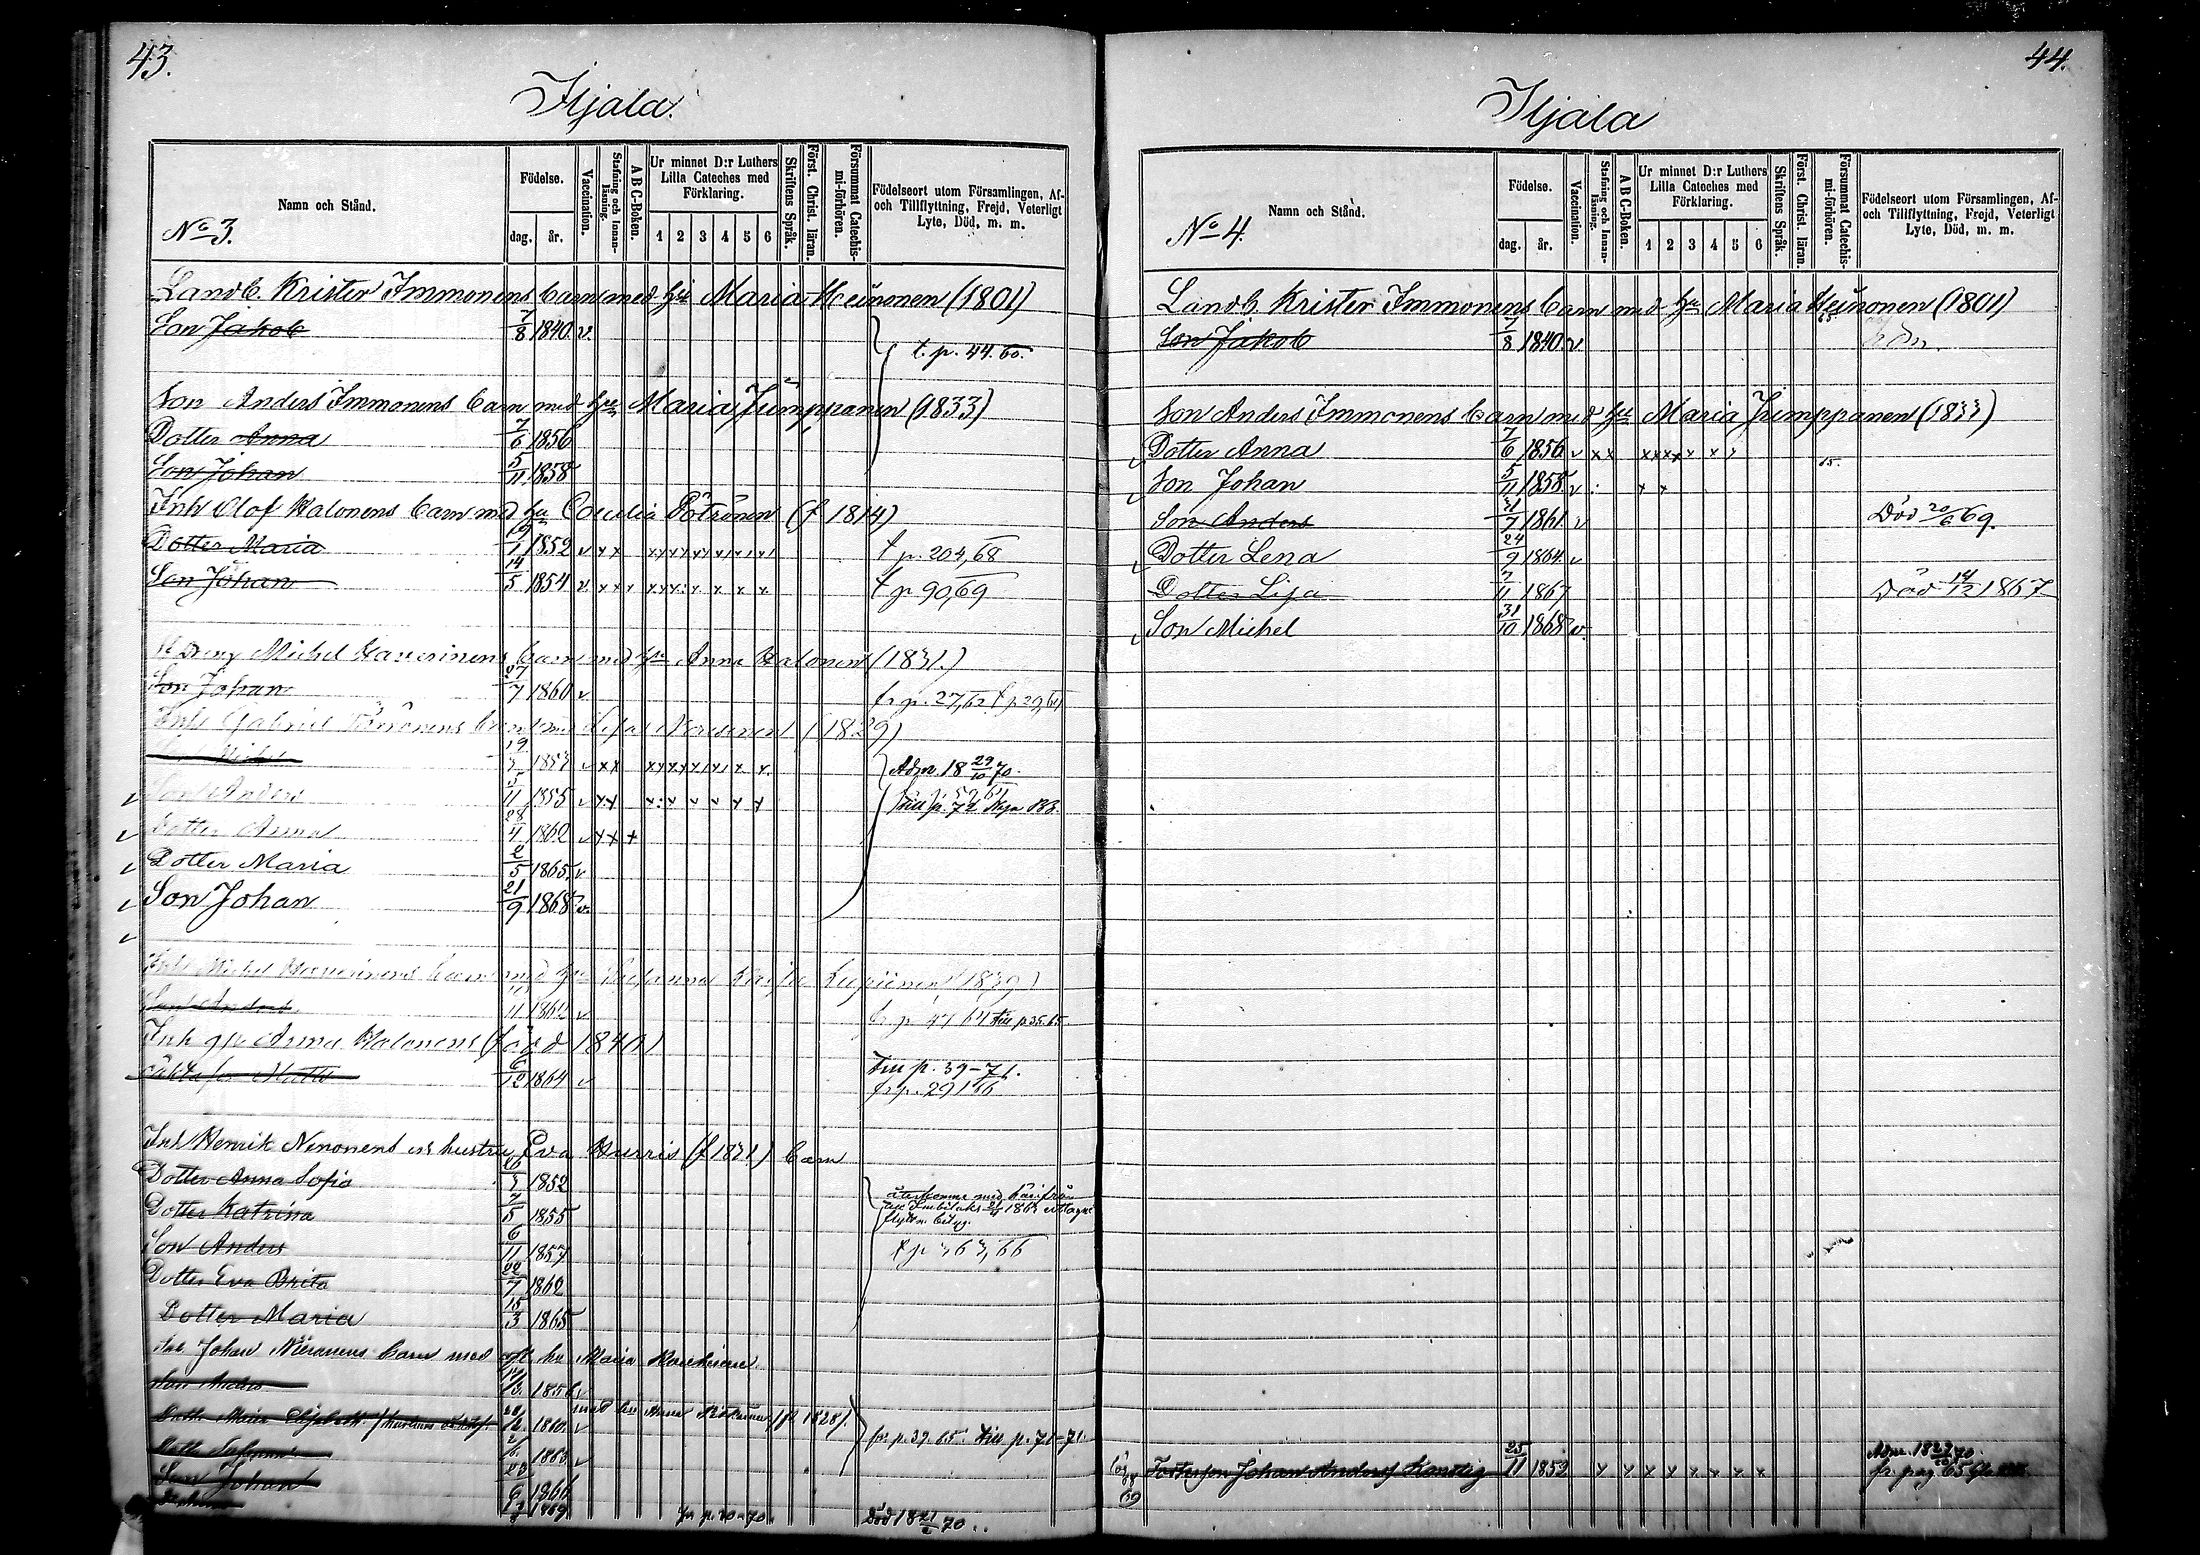 43.
Ihjala.
Namn och Stånd.
No 3.
Födelse.
dag. år.
Vaccination.
Stafning och Innanläsning.
A B C-Boken.
Ur minnet D:r Luthers Lilla Cateches med Förklaring.
1 2 3 4 5 6
Skriftens Språk.
Först. Christ. läran.
Försummat Catechismi-förhören.
Födelseort utom Församlingen, Af- och Tillflyttning, Frejd, Veterligt Lyte, Död, m. m.
Landb. Krister Immonens barn med hu Maria Heinonen (1801)
Son Jakob 7/8 1840 v.
t. p. 44. 60.
Son Anders Immonens barn med hu Maria Jumppanen (1833)
Dotter Anna 7/6 1856
Son Johan 5/11 1858
Inh Olof Halonens barn med hu Coecilia Pötrönen (f 1814)
Dotter Maria 1852 v x x x x x x x x t p. 204,68
Son Johan 14/5 1854 v x x x x x x x x x t p 90,69
Dreng Michel Haverinens barn med hu Anna Halonen (1831.)
Son Johan 27/7 1860 v fr p. 27,62 t p 29,64
Inh Gabriel barn med Lisa (1829)
19 1853 v x x x x x x x x x Adm. 18 29/10 70.
Son Anders 5/11 1855 v x x x x x x x x till p. 72 Nya BB.
Dotter Anna 28/4 1862 v x x x
Dotter Maria 2/5 1865 v
Son Johan 21/9 1868 v.
Inh Michel Haverinens barn med hu Susanna Kaisa (1839)
Son Anders 11 1862 v till p. 35. 65
Inh gp Anna Halonens (född 1840)
oäkta son Matts 6/12 1864 v Till p. 39-71.
fr p. 29,166
Inh Henrik Nenonens och hustru Eva Hurris (f 1831) barn
Dotter Anna Sofia 1852
Dotter Katrina 7/5 1855
Son Anders 6/11 1857
t p 363,66
Dotter Eva Brita 22/7 1862
Dotter Maria 15/3 1865
Inh Johan barn med Maria
Son Anders 1858 v
Dotter Maria Elisabeth 1860 v med hu Anna (f 1828)
fr p. 39. 65. Till p. 71-71.
1863 v
Son Johan 1866
1869 fr p. 70-70 Död 18 21 70.
44.
Ihjala
Namn och Stånd.
No 4.
Födelse.
dag. år.
Vaccination.
Stafning och Innanläsning.
A B C-Boken.
Ur minnet D:r Luthers Lilla Cateches med Förklaring.
1 2 3 4 5 6
Skriftens Språk.
Först. Christ. läran.
Försummat Catechismi-förhören.
Födelseort utom Församlingen, Af- och Tillflyttning, Frejd, Veterligt Lyte, Död, m. m.
Landb. Krister Immonens barn med hu Maria Heinonen (1801)
Son Jakob 7/8 1840 v 65.
Son Anders Immonens barn med hu Maria Jumppanen (1833)
Dotter Anna 7/6 1856 v x x x x x x x x x
Son Johan 5/11 1858 v x x 65.
Son Anders 21/7 1861 v Död 20/6 69.
Dotter Lena 24/9 1864 v
Dotter Lisa 7/11 1867 Död 14/12 1867
Son Michel 31/10 1868 v.
Fosterson Johan Anders 25/11 1853 x x x x x x x x Adm. 18 70.
fr. pag 65